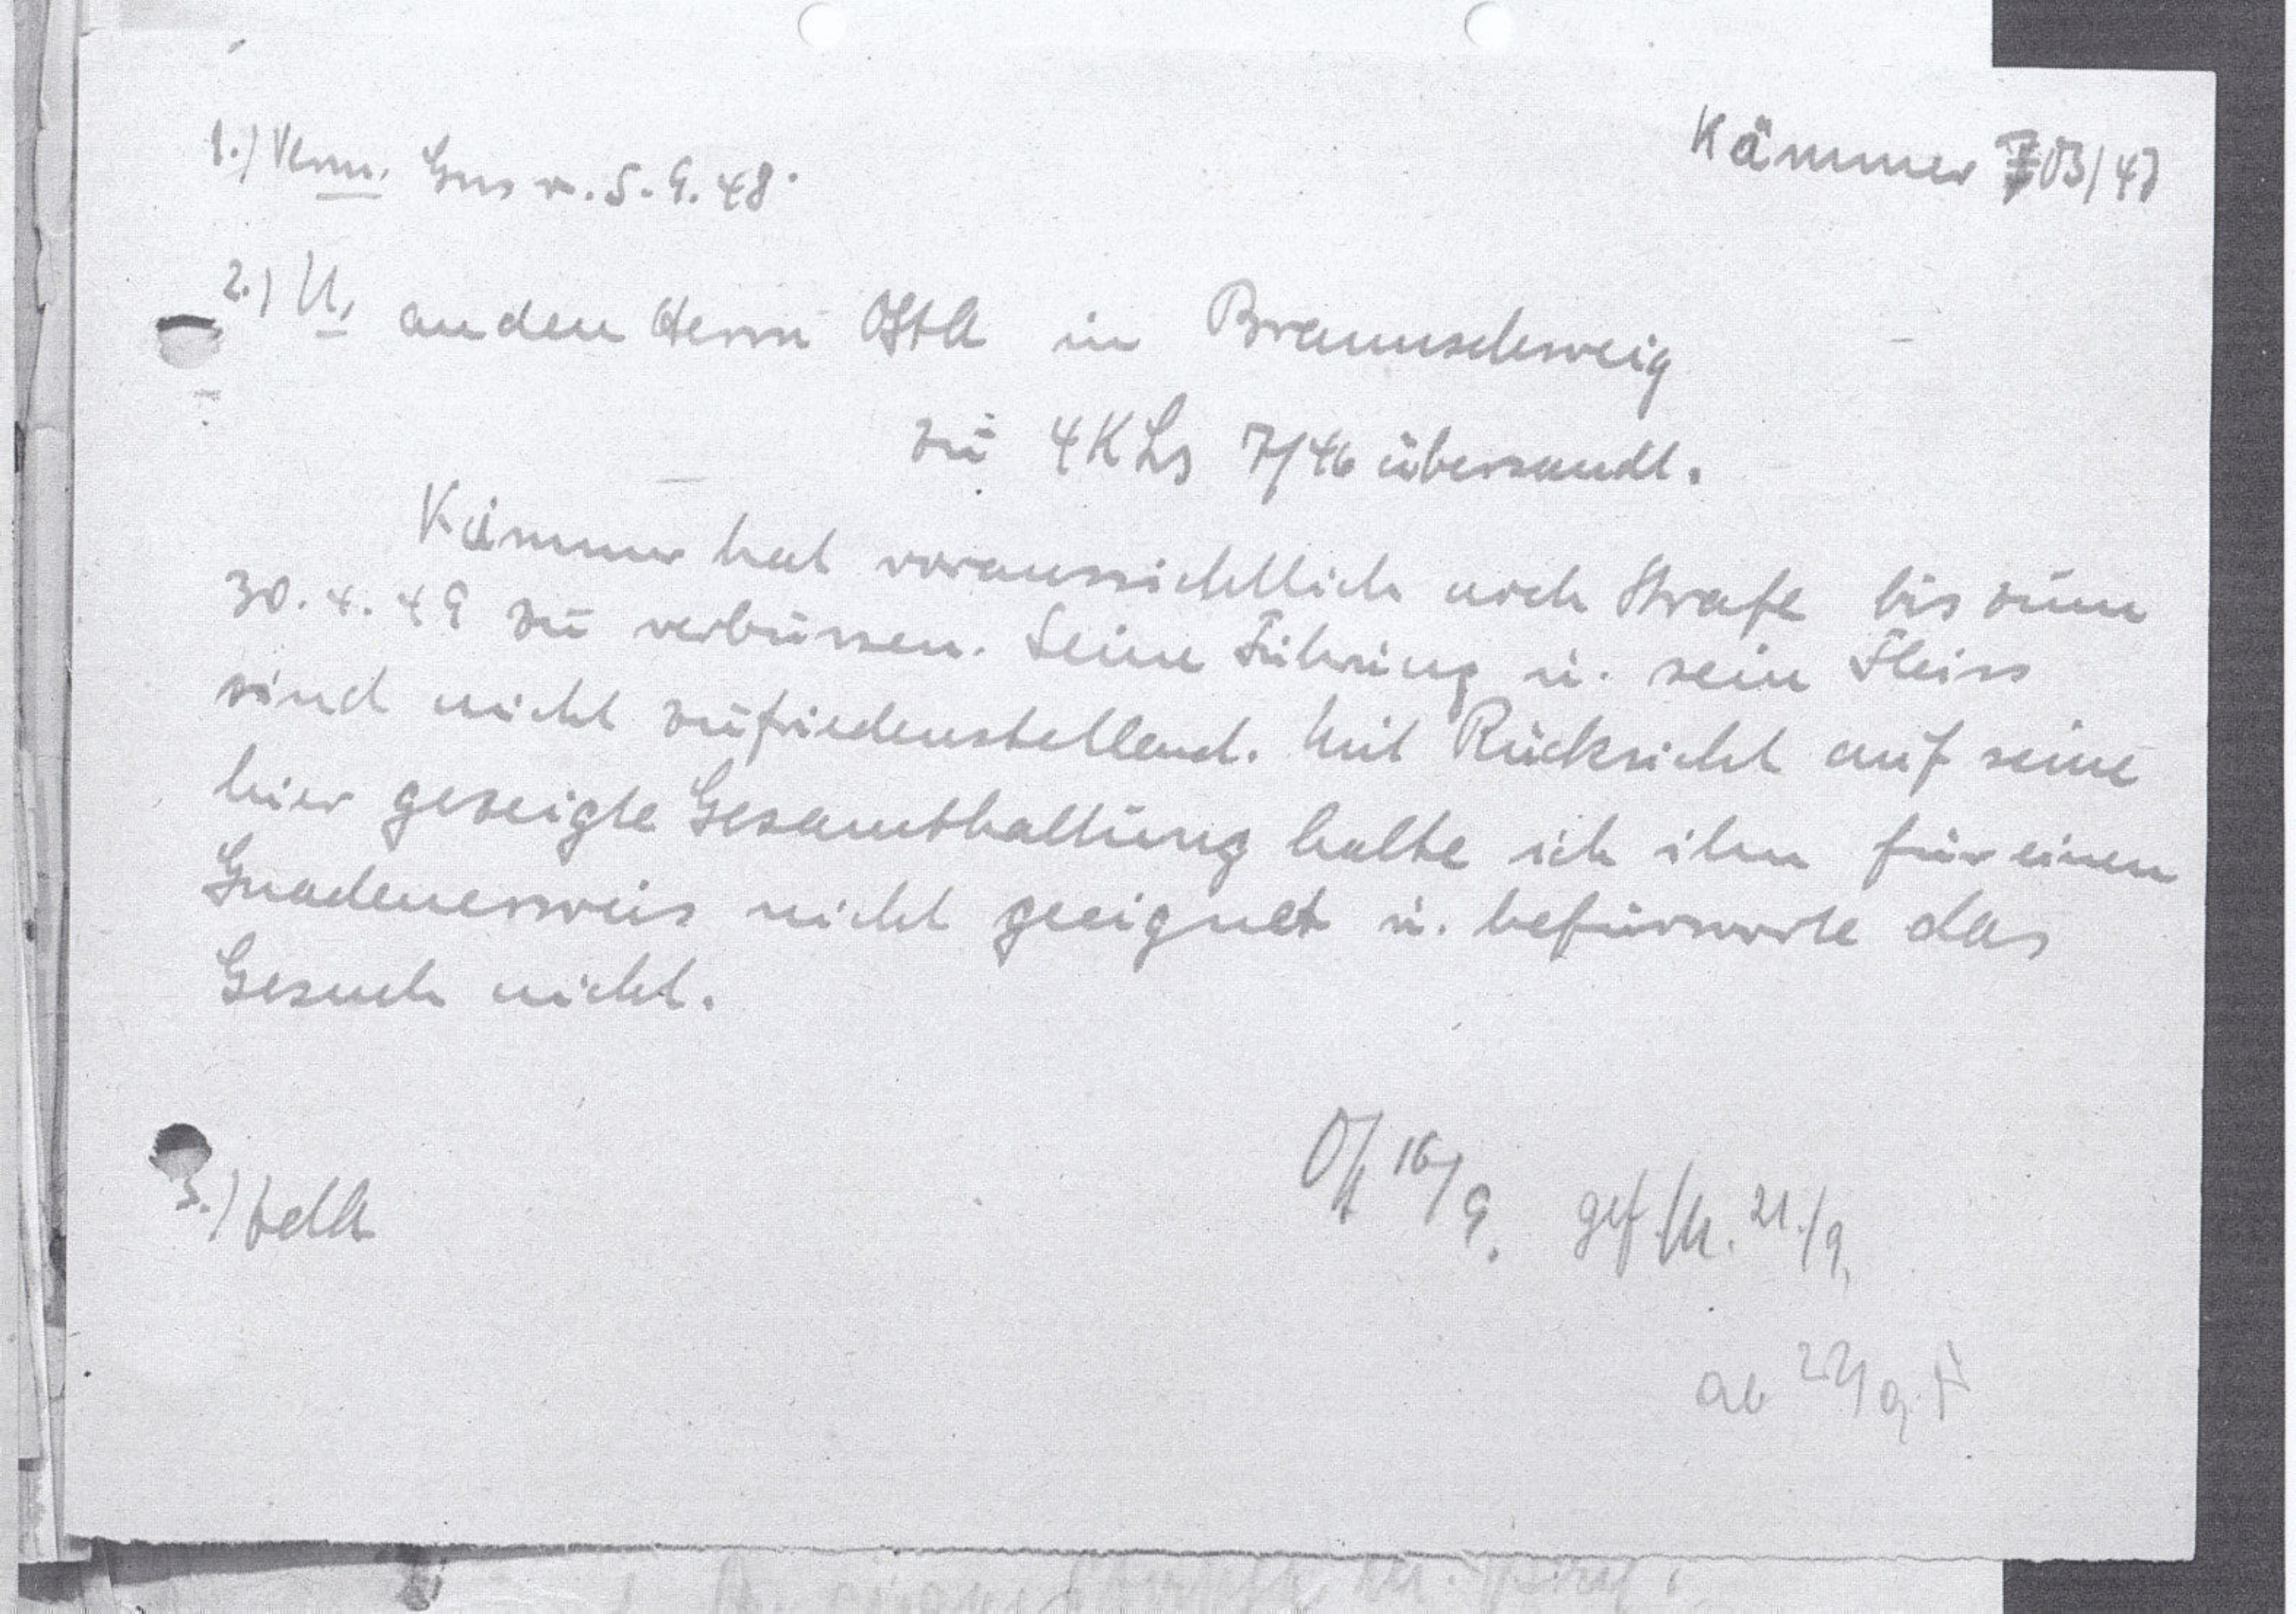 Kämmer 703/47
1.) Verm. Gns v. 5.9.48.
2.) U. an den Herrn OStA in Braunschweig
zu 4 KLs 7/46 übersandt.
Kämmer hat voraussichtlich noch Strafe bis zum
30.4.49 zu verbüssen. Seine Führung u. sein Fleiss
sind nicht zufriedenstellend. Mit Rücksicht auf seine
hier gezeigte Gesamthaltung halte ich ihn für einen
Gnadenerweis nicht geeignet u. befürworte das
Gesuch nicht.
16/9. gef. 21./9.
3.) ZdA
ab 22/9.